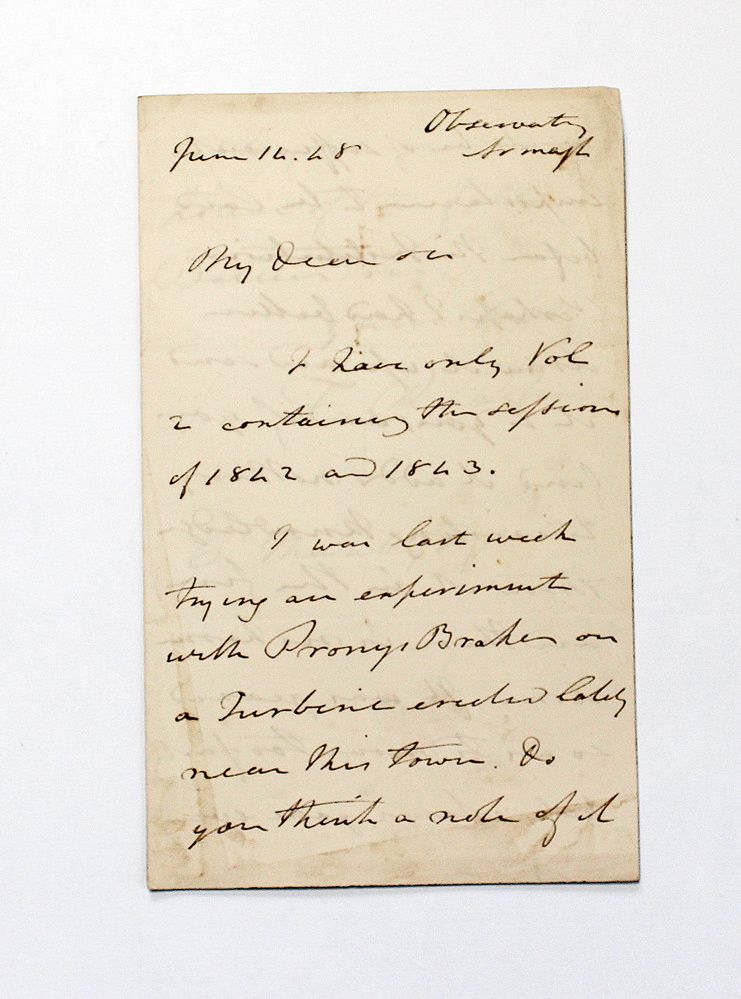 Observatory
Armagh
June 14. 48
My Dear Sir
I have only Vol
2 containing the sessions
of 1842 and 1843.
I was last week
trying an experiment
with Pronys Brake on
a Turbine erected lately
near this town. Do
you think a note of it